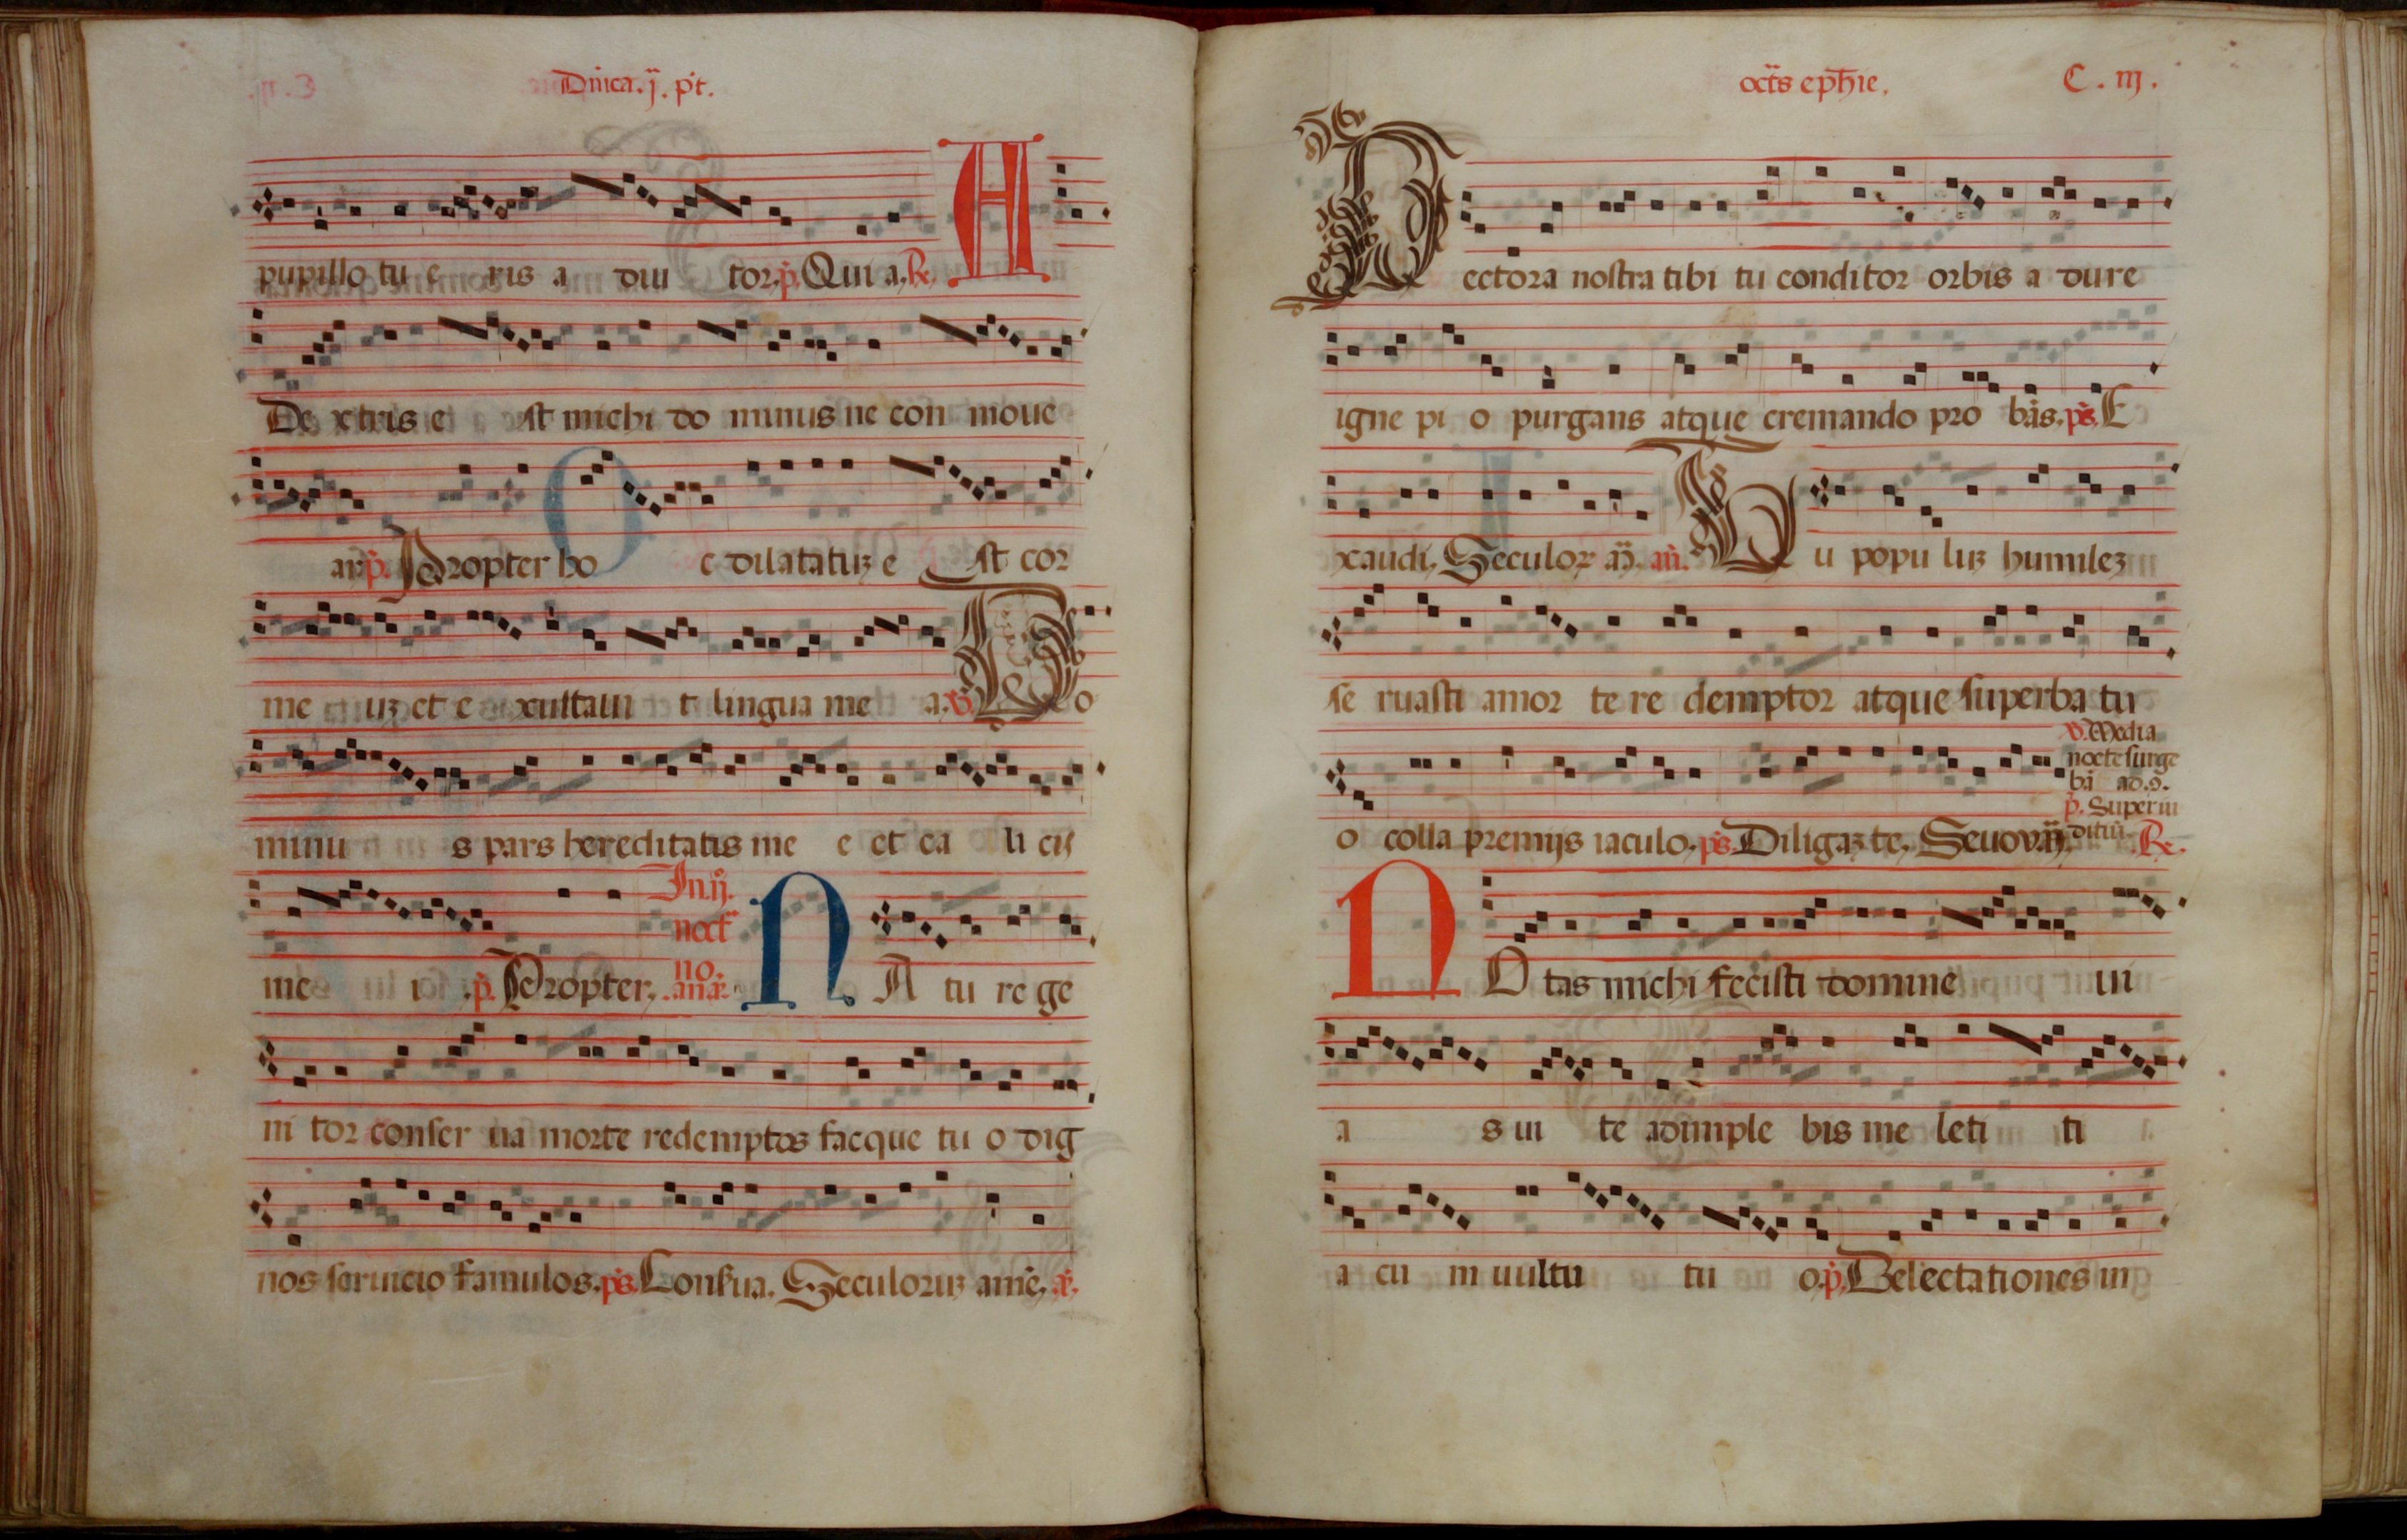 Dnica. ij. pt.
pupillo tu e ris a diu tor. p. Qui a. R. A
De xtris e st michi do minus ne con moue
ar. p. Propter ho c dilatatuz e st cor
me uz et e xultaui t lingua me a. V. Do
minu s pars hereditatis me e et ca li cis
me i. p. Propter.
In. ij.
noct
no.
anae
N A tu re ge
ni tor conser ua morte redemptos facque tu o dig
nos seruicio famulos. ps. Conserua. Seculoruz ame. a.
octs ephie. C. iij.
P ectora nostra tibi tu conditor orbis a dure
igne pi o purgans atque cremando pro bas. ps. E
xaudi. Seculor a. an. Tu popu luz humilez
se ruasti amor te re demptor atque superba tu
o colla premijs iaculo. ps. Diligaz te. Seuouaz.
V. Media
nocte surge
ba ad. 9.
p. Super iu
ditia. R.
N O tas michi fecisti domine ui
a s ui te adimple bis me leti ti
a cu m uultu tu o. p. Delectationes in